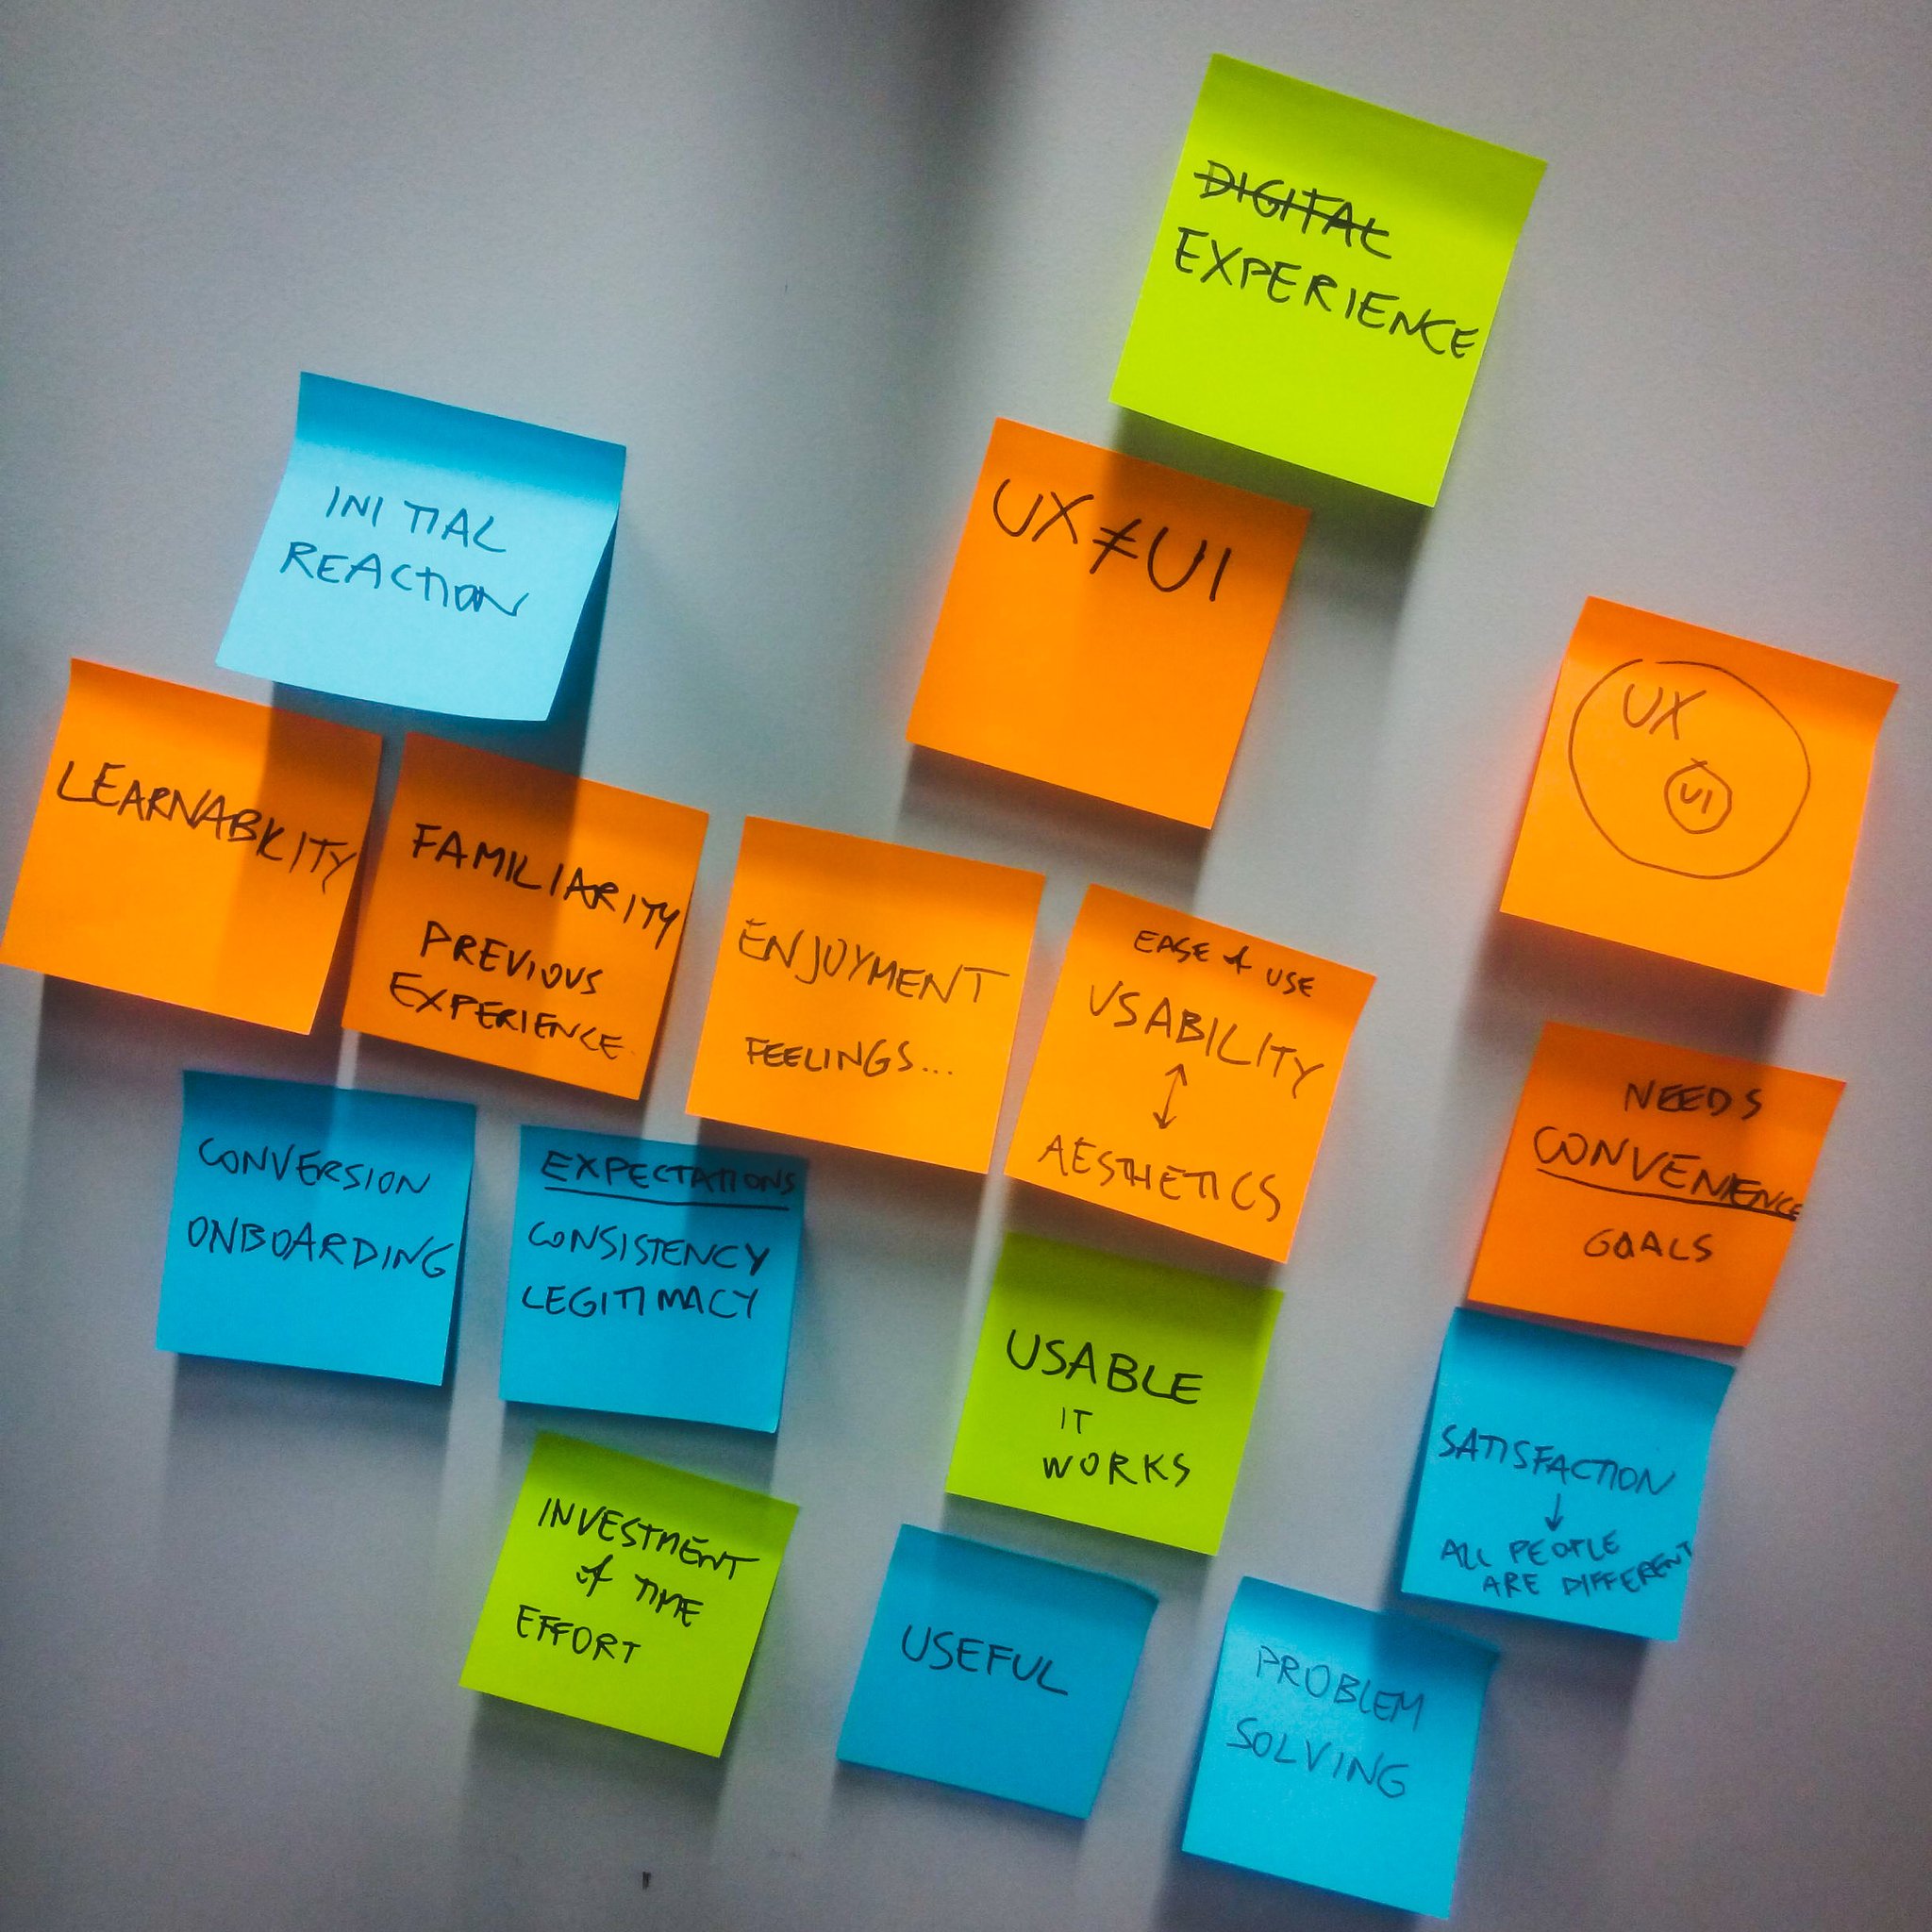 DIGITAL
EXPERIENCE
INITIAL
REACTION
UX≠UI
UX
UI
LEARNABILITY
FAMILIARITY
PREVIOUS
EXPERIENCE.
ENJOYMENT
FEELINGS...
EASE of USE
USABILITY
↕
AESTHETICS
NEEDS
CONVENIENCE
GOALS
CONVERSION
ONBOARDING
EXPECTATIONS
CONSISTENCY
LEGITIMACY
USABLE
IT
WORKS
SATISFACTION
↓
ALL PEOPLE
ARE DIFFERENT
INVESTMENT
of TIME
EFFORT
USEFUL
PROBLEM
SOLVING